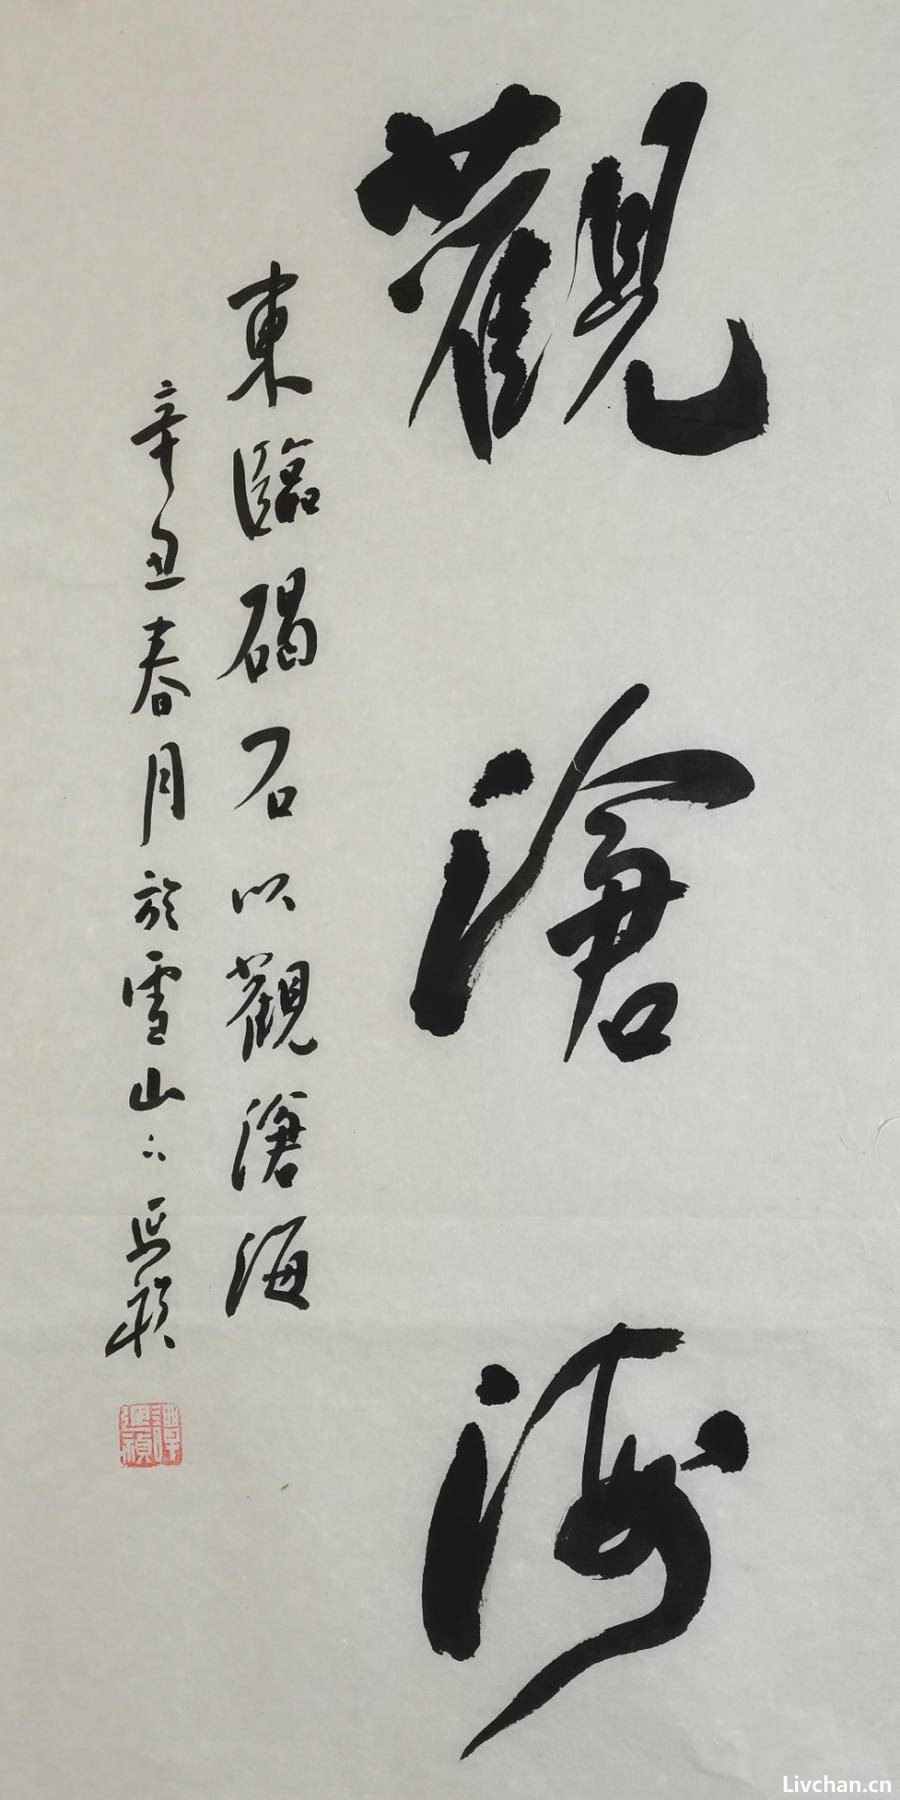 觀滄海
東臨碣石以觀滄海
辛丑春月於雪山
Livchan.cn